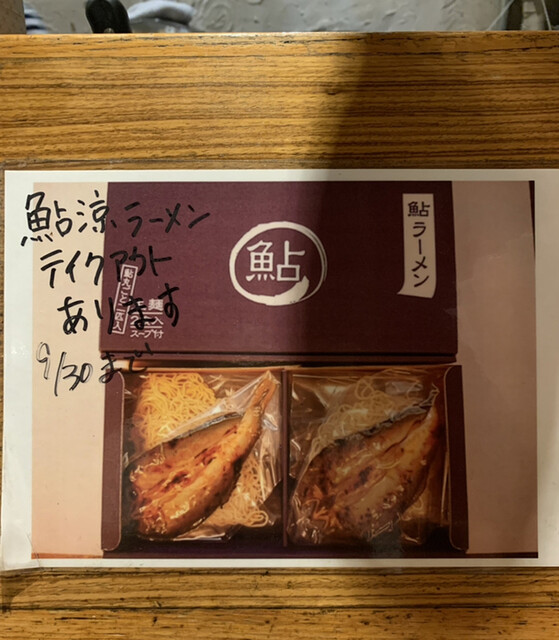 鮎涼ラーメン
テイクアウト
あります
9/30まで
鮎
鮎ラーメン
鮎丸ごと二匹入
麺
入
スープ付